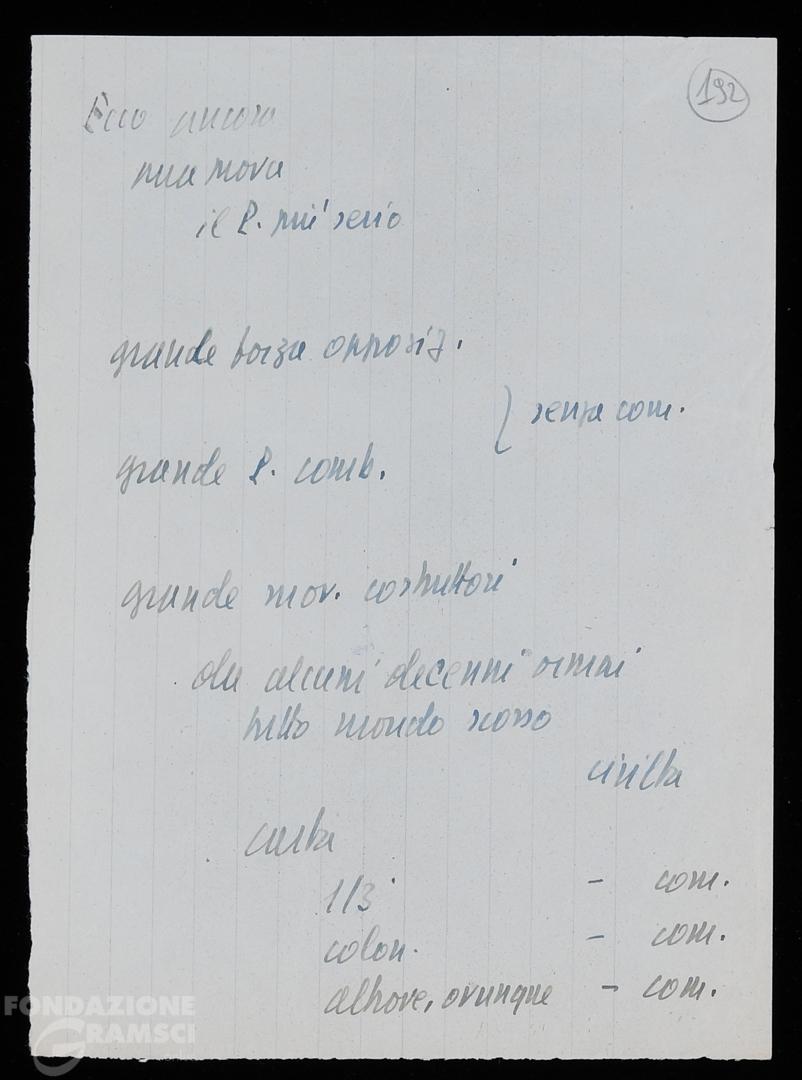 192
Ecco ancora
una prova
il P. più serio
grande forza opposiz.
} senza com.
grande P. comb.
grande mov. costruttori
da alcuni decenni ormai
tutto mondo scosso
civiltà
carta
1/3 - com.
colon. - com.
altrove, ovunque - com.
FONDAZIONE
GRAMSCI